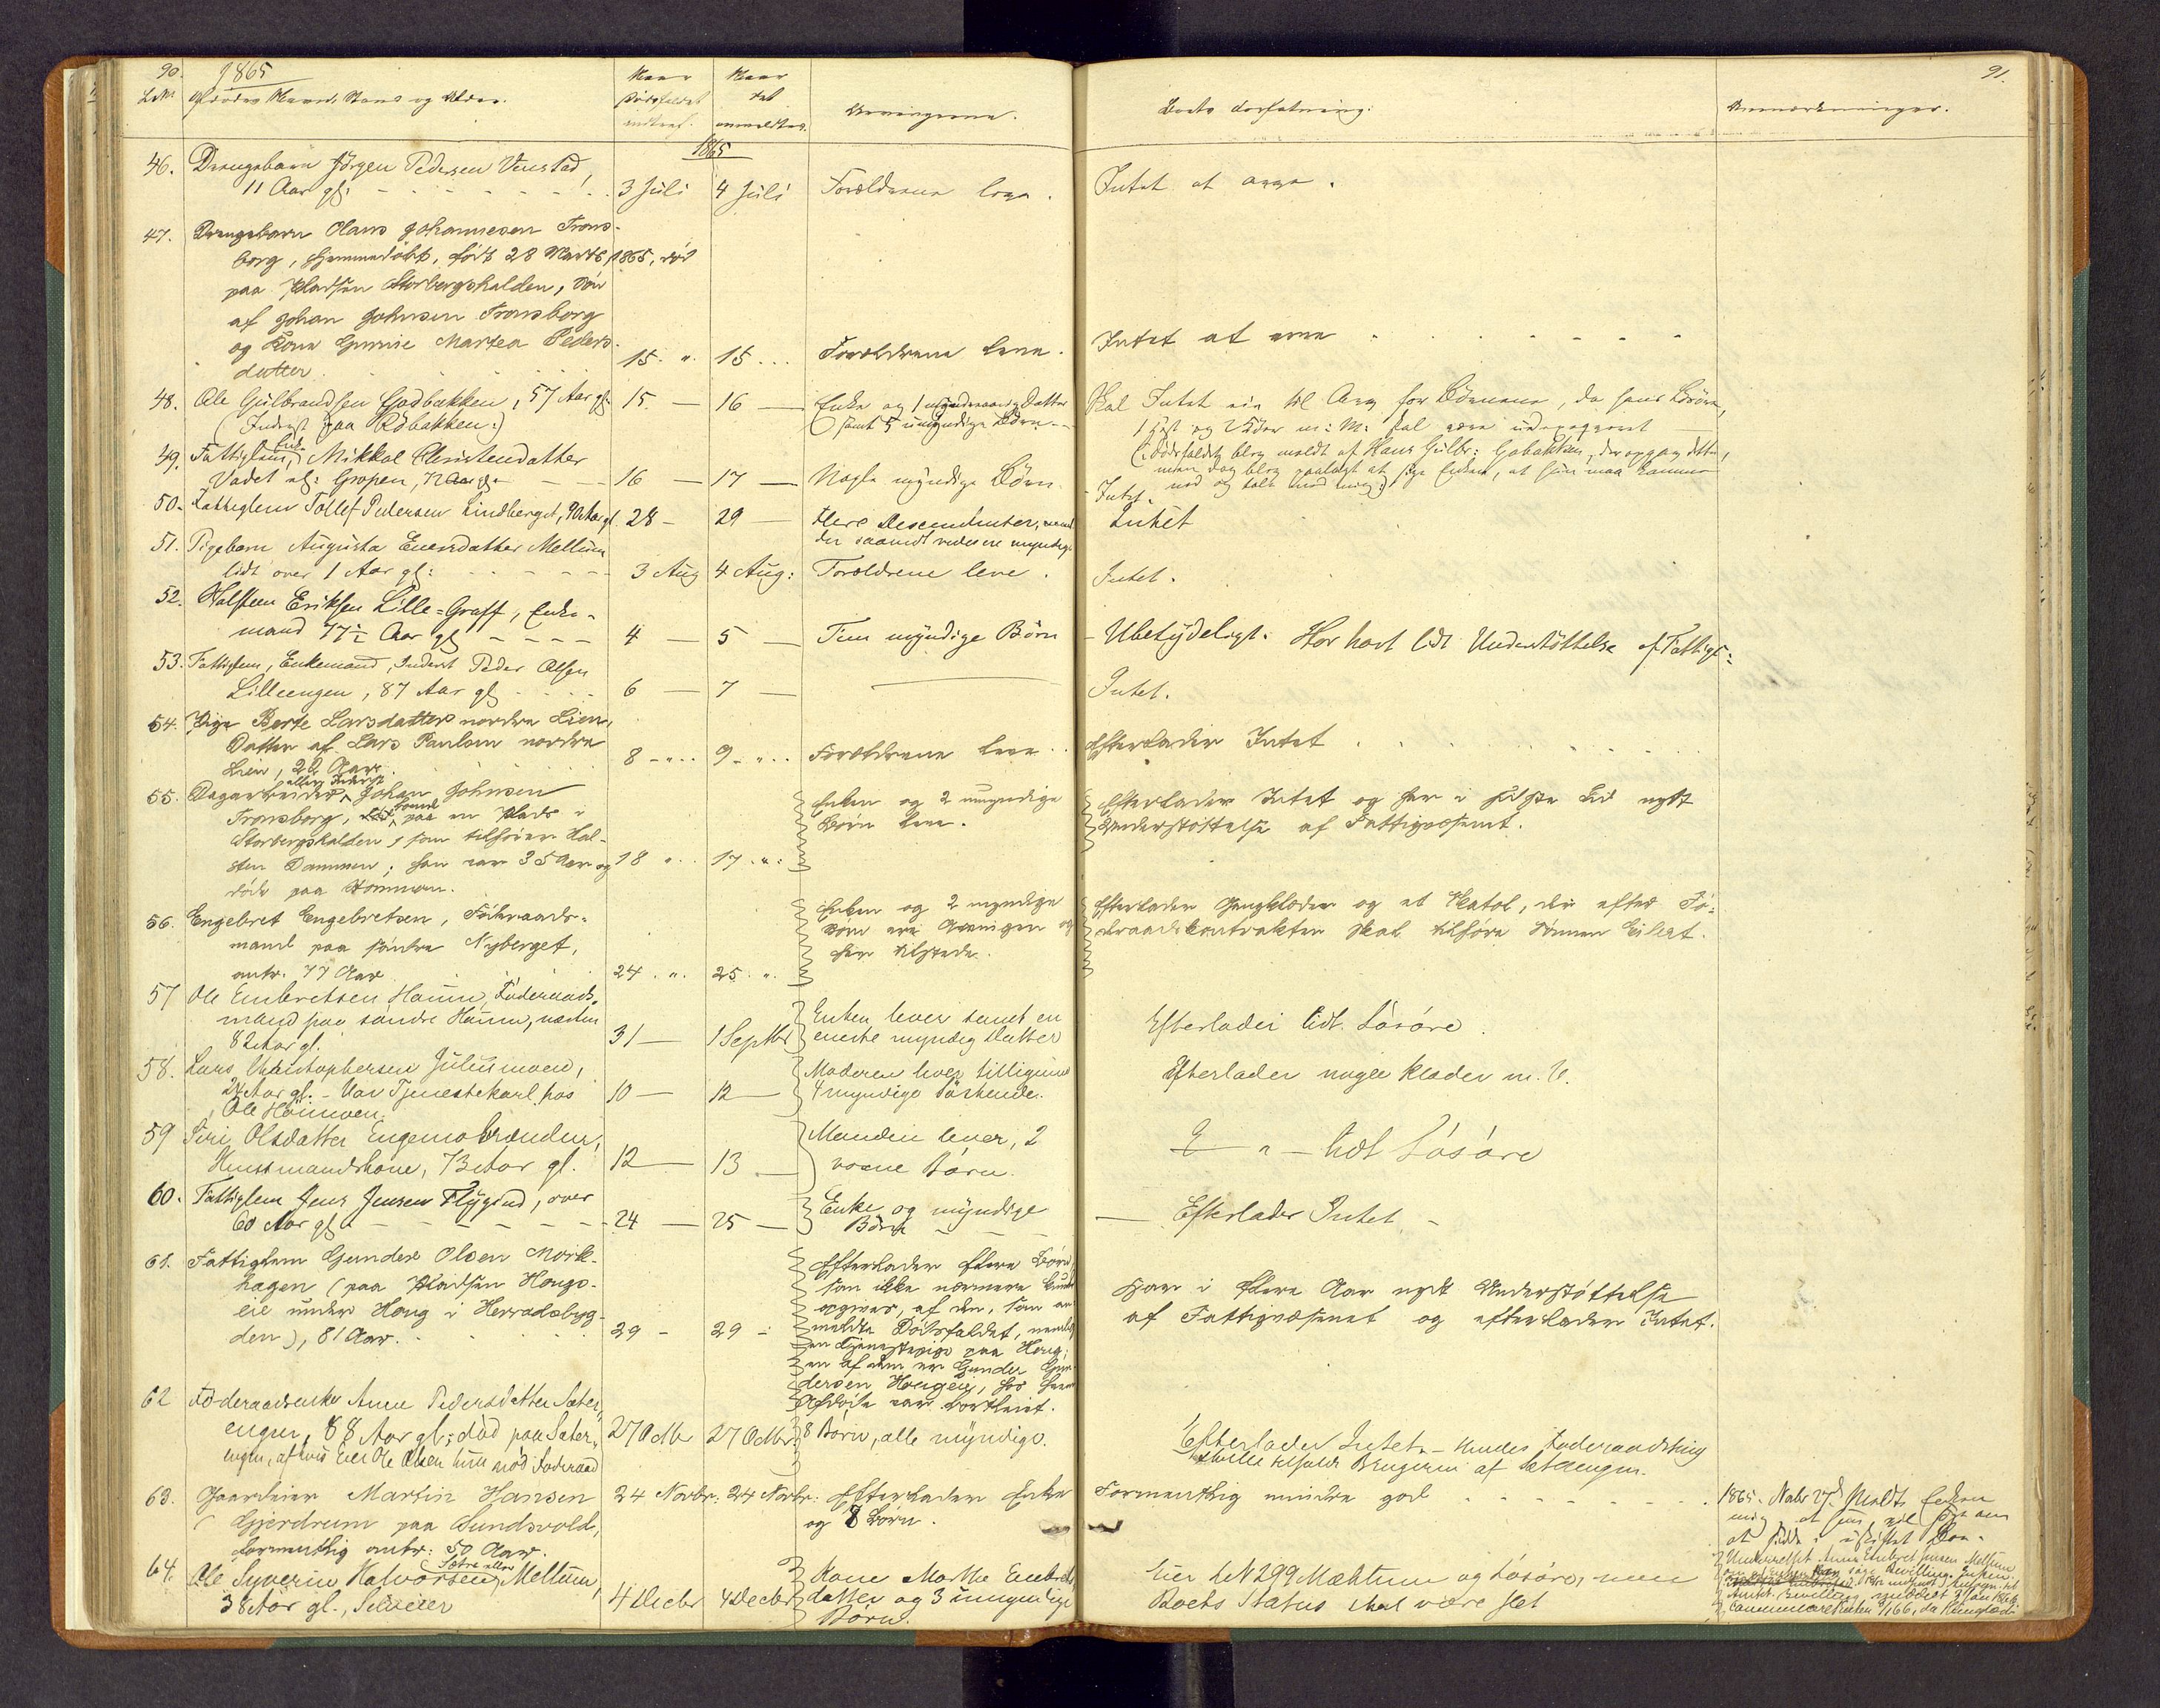 90. 1865
91.
Afdødes Navn, Stand og Alder.
Naar Dødsfaldet indtraf.
Naar det anmeldtes.
Arvingerne.
Boets Forfatning.
Anmærkninger.
1865
46. Drengebarn Jörgen Pedersen Venstad,
11 Aar gl: 3 Juli 4 Juli Forældrene leve. Intet at arve.
47. Drengebarn Olaus Johannesen Frons-
borg, hjemmedøbt, født 28 Marts 1865, død
paa Pladsen Storbergshalden, Søn
af Johan Johnsen Fronsborg
og Kone Gunnie Martea Peders-
datter. 15. " 15 Forældrene leve. Intet at arve
48. Ole Gulbrandsen Godbakken, 57 Aar gl: 15. — 16 — Enke og 1 Datter
(Inderst paa Rödbakken:) samt 5 umyndige Börn
Skal Intet eie til Arv for Börnene, da hans Løsøre,
1 Hest og 2 m: M: skal være udpantet
(Dødsfaldet blev meldt af Hans Gulbr: Gobakken, der opgav dette,
men dog blev paalagt at sige Enken, at hun maa komme
ned og tale med mig:)
49. Fattiglem, Enke, Mikkal Christendatter
Vadet al: Gropen, 72 Aar gl. 16 — 17 — Nogle myndige Börn. Intet.
50. Fattiglem Tollef Pedersen Lindberget, 90 Aar gl. 28 — 29 — Flere Descendenter, men
der saavidt vides ere myndige Intet
51. Pigebarn Augusta Evensdatter Mellum
lidt over 1 Aar gl: 3 Aug 4 Aug: Forældrene leve. Intet.
52. Halsteen Eriksen Lille-Graff, Enke-
mand 77½ Aar gl 4 — 5 — Fem myndige Börn Ubetydeligt. Har havt lidt Understöttelse af Fattigv:
53. Fattiglem, Enkemand, Inderst Peder Olsen
Lilleengen, 87 Aar gl 6 — 7 — Intet.
54. Pige Berte Larsdatter nordre Lien,
Datter af Lars Paulsen nordre
Lien, 22 Aar. 8 — " 9 — " Forældrene leve. Efterlader Intet
55. Dagarbeider eller Inderst Johan Johnsen
Fronsborg, paa en Plads i
Storbergshalden, som tilhører Hal-
sten Dammen; han var 35 Aar og
døde paa Hommen. 18 " 17 " Enken og 2 umyndige
Børn leve. Efterlader Intet og har i sidste Tid nydt
Understøttelse af Fattigvæsenet.
56. Engebret Engebretsen, Föderaads-
mand paa søndre Nyberget,
antr. 77 Aar 24. " 25. " Enken og 2 myndige
Børn ere Arvinger og
her tilstede.
Efterlader Gangklæder og et Skatol, der efter Fø-
draadskontrakten skal tilhøre Sønnen Eilert.
57 Ole Embretsen Haune, Föderaads-
mand paa söndre Haune, næsten
82 Aar gl. 31 — 1 Septbr Enken lever samt en
eneste myndig Datter Efterlader lidt Lösöre.
58. Lars Christophersen Juliusmoen,
24 Aar gl. - Var Tjenestekarl hos
Ole Haumoen. 10 — 12 — Moderen lever tilligemed
4 myndige Söskende. Efterlader nogle Klæder m. V.
59 Siri Olsdatter Engemobrænden,
Huusmandskone, 73 Aar gl. 12 — 13 — Manden lever, 2
voxne Börn. E — " — lidt Lösöre
60. Fattiglem Jens Jensen Flygind, over
60 Aar gl 24 — 25 — Enke og myndige
Börn — Efterlader Intet —
61. Fattiglem Gunder Olsen Mörk-
hagen (paa Pladsen Hougs-
eie under Houg i Herradsbyg-
den), 81 Aar. 29 — 29 — Efterlader flere Börn,
som ikke nærmere kunde
opgives, af den, som an-
meldte Dødsfaldet, nemlig
en Tjenestepige paa Houg;
en af dem er Gunder Gun-
dersen Hougseie, hos hvem
Afdøde var bortleiet.
Har i flere Aar nydt Understøttelse
af Fattigvæsenet og efterlader Intet.
62 Föderaadsenke Anne Pedersdatter Sæter-
engen, 88 Aar gl; död paa Sæter-
engen, af hvis Eier Ole Olsen hun nöd Foderaad 27 Octbr 27 Octbr. 8 Börn, alle myndige.
Efterlader Intet. - Hendes Foderaadsting
skulle tilfalde Brugeren af Sæterengen.
63. Gaardeier Martin Hansen
Gjerdrum paa Sundsvold,
formentlig antr: 50 Aar. 24 Novbr: 24 Novbr: Efterlader Enke
og 8 Børn. Formentlig mindre god
1865. Novbr 27de Meldte Enken
mig, at hun vil søge om
at sidde i uskiftet Bo.
64. Ole Syverin Halvorsen (Sætre eller) Mellum,
38 Aar gl., Selveier 4 Decbr 4 Decbr Kone Marthe Embrets-
datter og 3 umyndige
Börn.
Eier LN 299 Mæhlum og Lösöre, men
Boets Status skal være slet